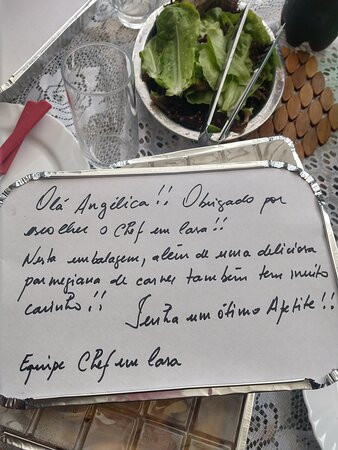 Olá Angélica!! Obrigado por
escolher o Chef em Casa!!
Nesta embalagem, além de uma deliciosa
parmegiana de carne, também tem muito
carinho!!
Tenha um ótimo Apetite!!
Equipe Chef em Casa